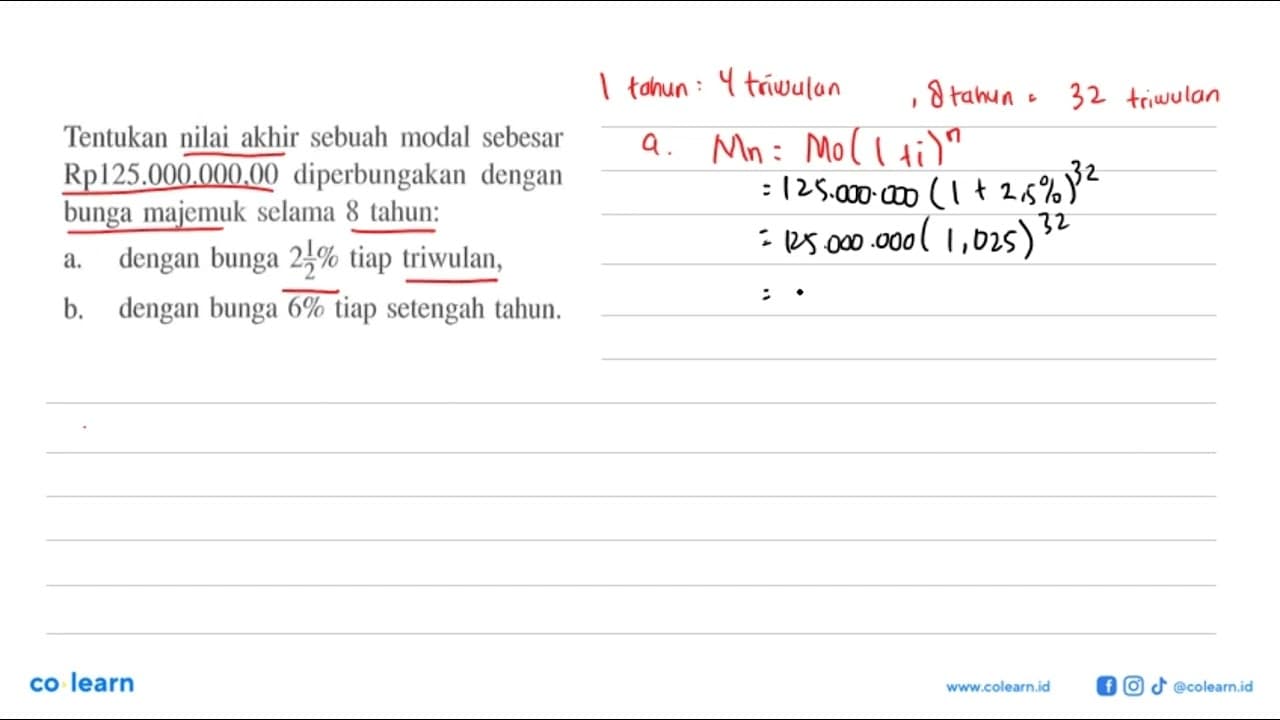 1 tahun : 4 triwulan , 8 tahun = 32 triwulan
Tentukan nilai akhir sebuah modal sebesar
Rp125.000.000,00 diperbungakan dengan
bunga majemuk selama 8 tahun:
a. dengan bunga 2 1/2% tiap triwulan,
b. dengan bunga 6% tiap setengah tahun.
a. Mn = Mo(1+i)^n
= 125.000.000 (1 + 2,5%)^32
= 125.000.000 (1,025)^32
= .
co learn
www.colearn.id
@colearn.id